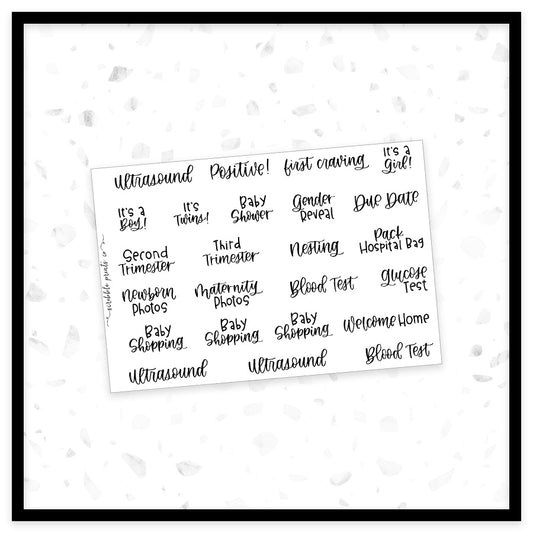 ultrasound Positive! first craving It's a Girl!
It's a Boy! It's Twins! Baby Shower Gender Reveal Due Date
Second Trimester Third Trimester Nesting Pack Hospital Bag
Newborn Photos Maternity Photos Blood Test Glucose Test
Baby Shopping Baby Shopping Baby Shopping Welcome Home
ultrasound ultrasound Blood Test
scribble prints co